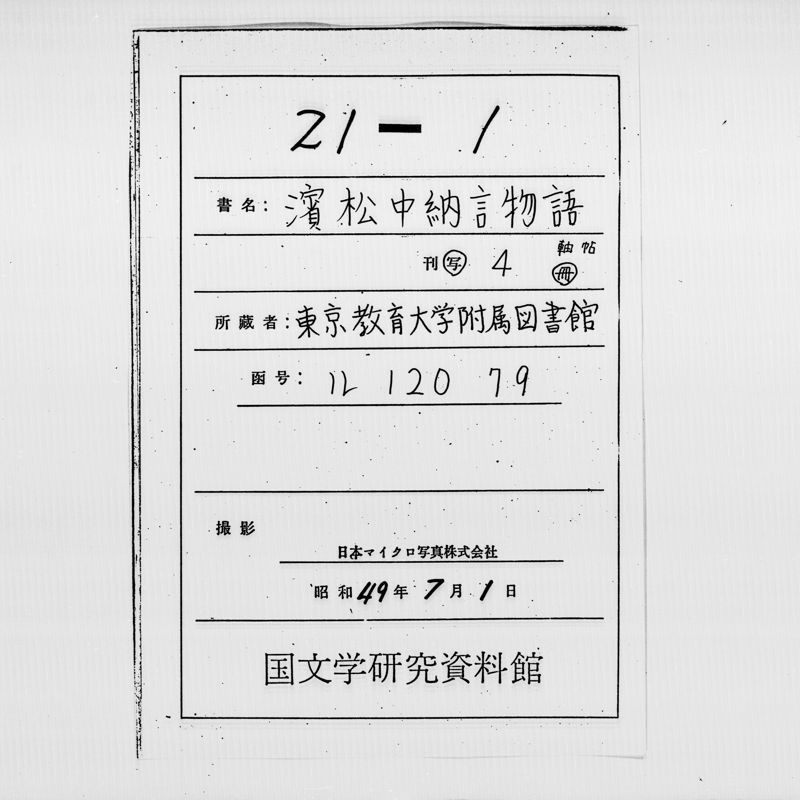 21-1
書名: 濱松中納言物語
軸 帖
刊 写 4 冊
所蔵者: 東京教育大学附属図書館
函号: ル 120 79
撮影
日本マイクロ写真株式会社
昭和49年7月1日
国文学研究資料館